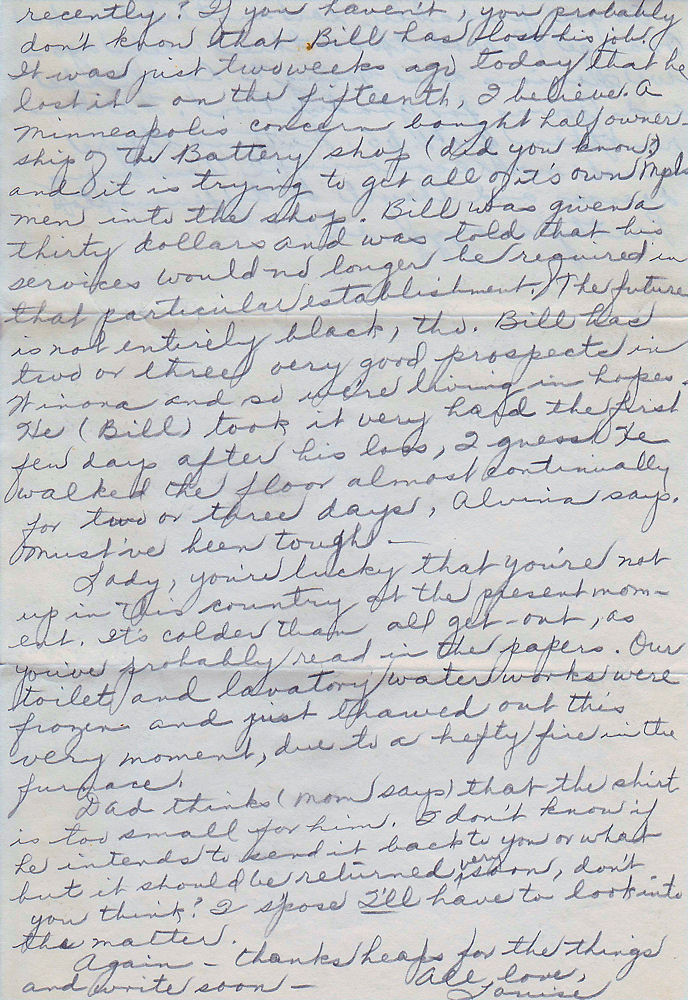 recently? If you haven't, you probably
don't know that Bill has lost his job.
It was just two weeks ago today that he
lost it - on the fifteenth, I believe. A
Minneapolis concern bought half owner-
ship of the Battery shop (did you know?)
and it is trying to get all of it's own Mpls
men into the shop. Bill was given a
thirty dollars and was told that his
services would no longer be required in
that particular establishment. The future
is not entirely black, tho. Bill has
two or three very good prospects in
Winona and so we're living in hopes.
He (Bill) took it very hard the first
few days after his loss, I guess. He
walked the floor almost continually
for two or three days, Alvina says.
Must've been tough -
Lady, you're lucky that you're not
up in this country at the present mom-
ent. It's colder than all get-out, as
you've probably read in the papers. Our
toilet and lavatory water works were
frozen and just thawed out this
very moment, due to a hefty fire in the
furnace.
Dad thinks (Mom says) that the shirt
is too small for him. I don't know if
he intends to send it back to you or what
but it should be returned very soon, don't
you think? I spose I'll have to look into
the matter.
Again - thanks heaps for the things
and write soon -
All love,
Louise